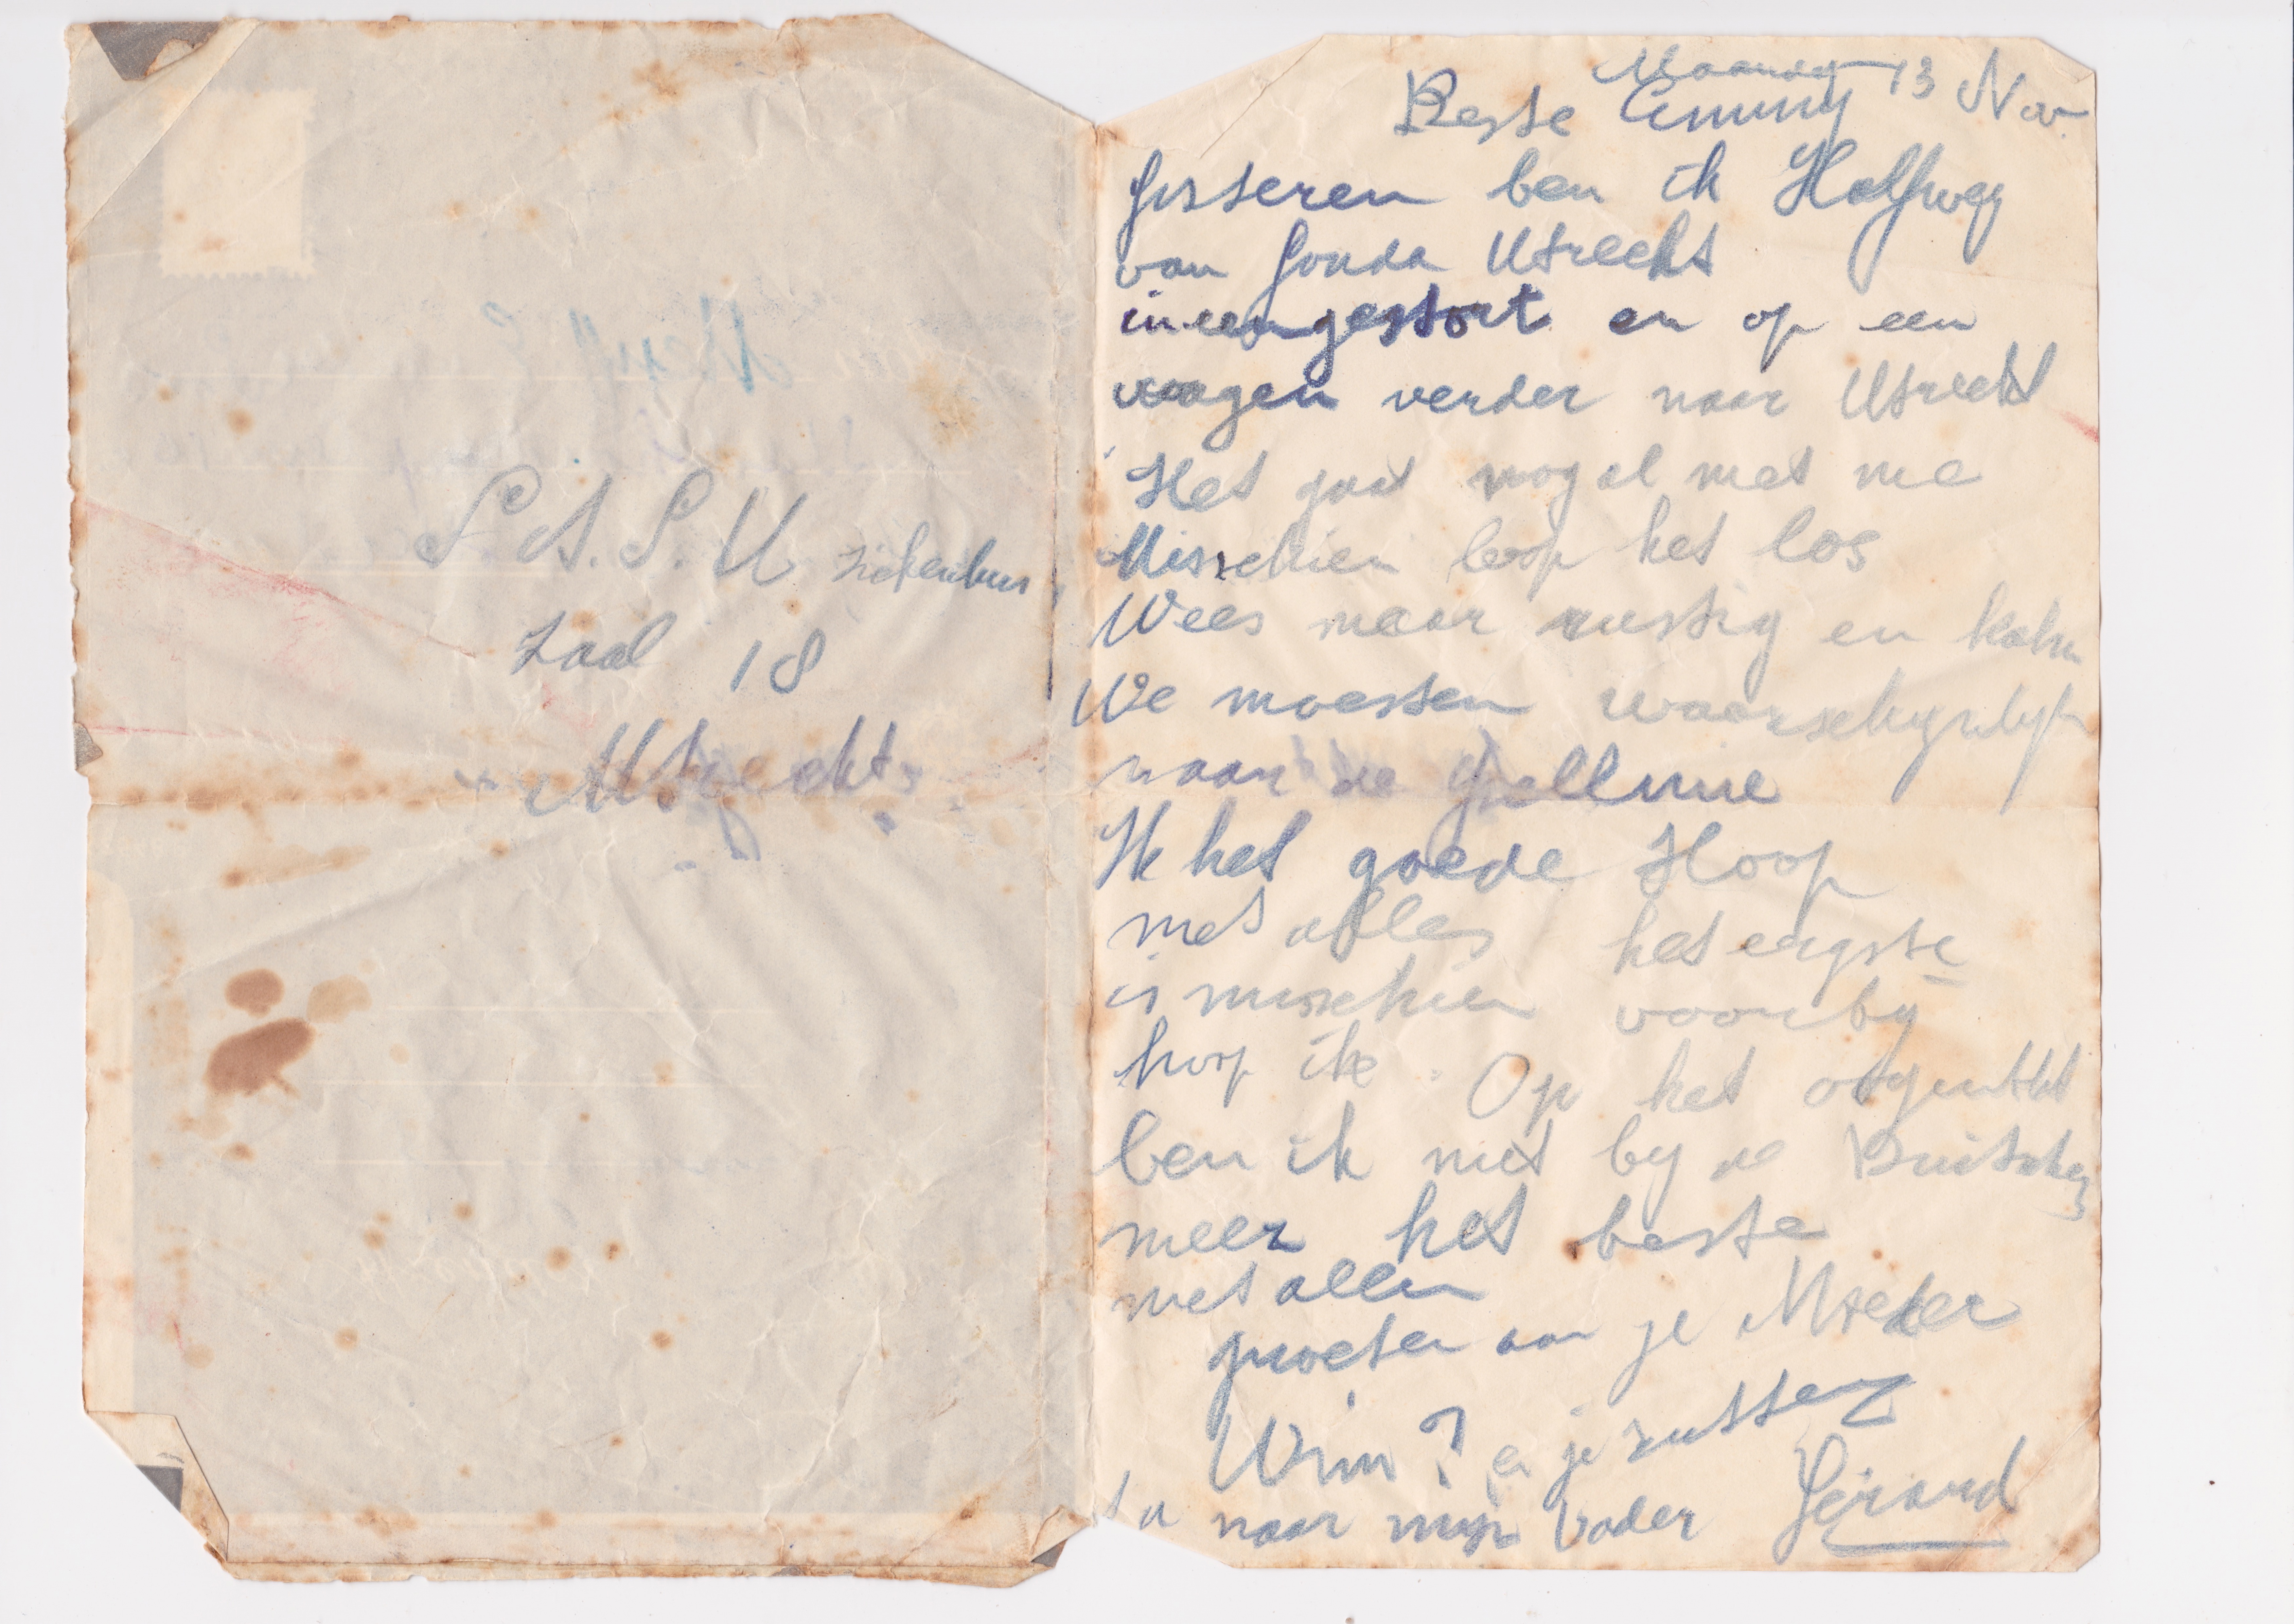 S.S.S.U ziekenhuis
Zaal 18
Utrecht
Maandag 13 Nov.
Beste Emmy
Gisteren ben ik Halfweg
van Gouda Utrecht
ineengestort en op een
wagen verder naar Utrecht
Het gaat nogal met me
Misschien loop het los
Wees maar rustig en kalm
We moesten waarschynlyk
naar de
Ik het goede Hoop
met alles het ergste
is misschien voorby
hoop ik. Op het
ben ik niet by de Duitschers
meer het beste
met allen
groeten aan je Moeder
Wim? en je zusters
naar mijn Vader Gerard